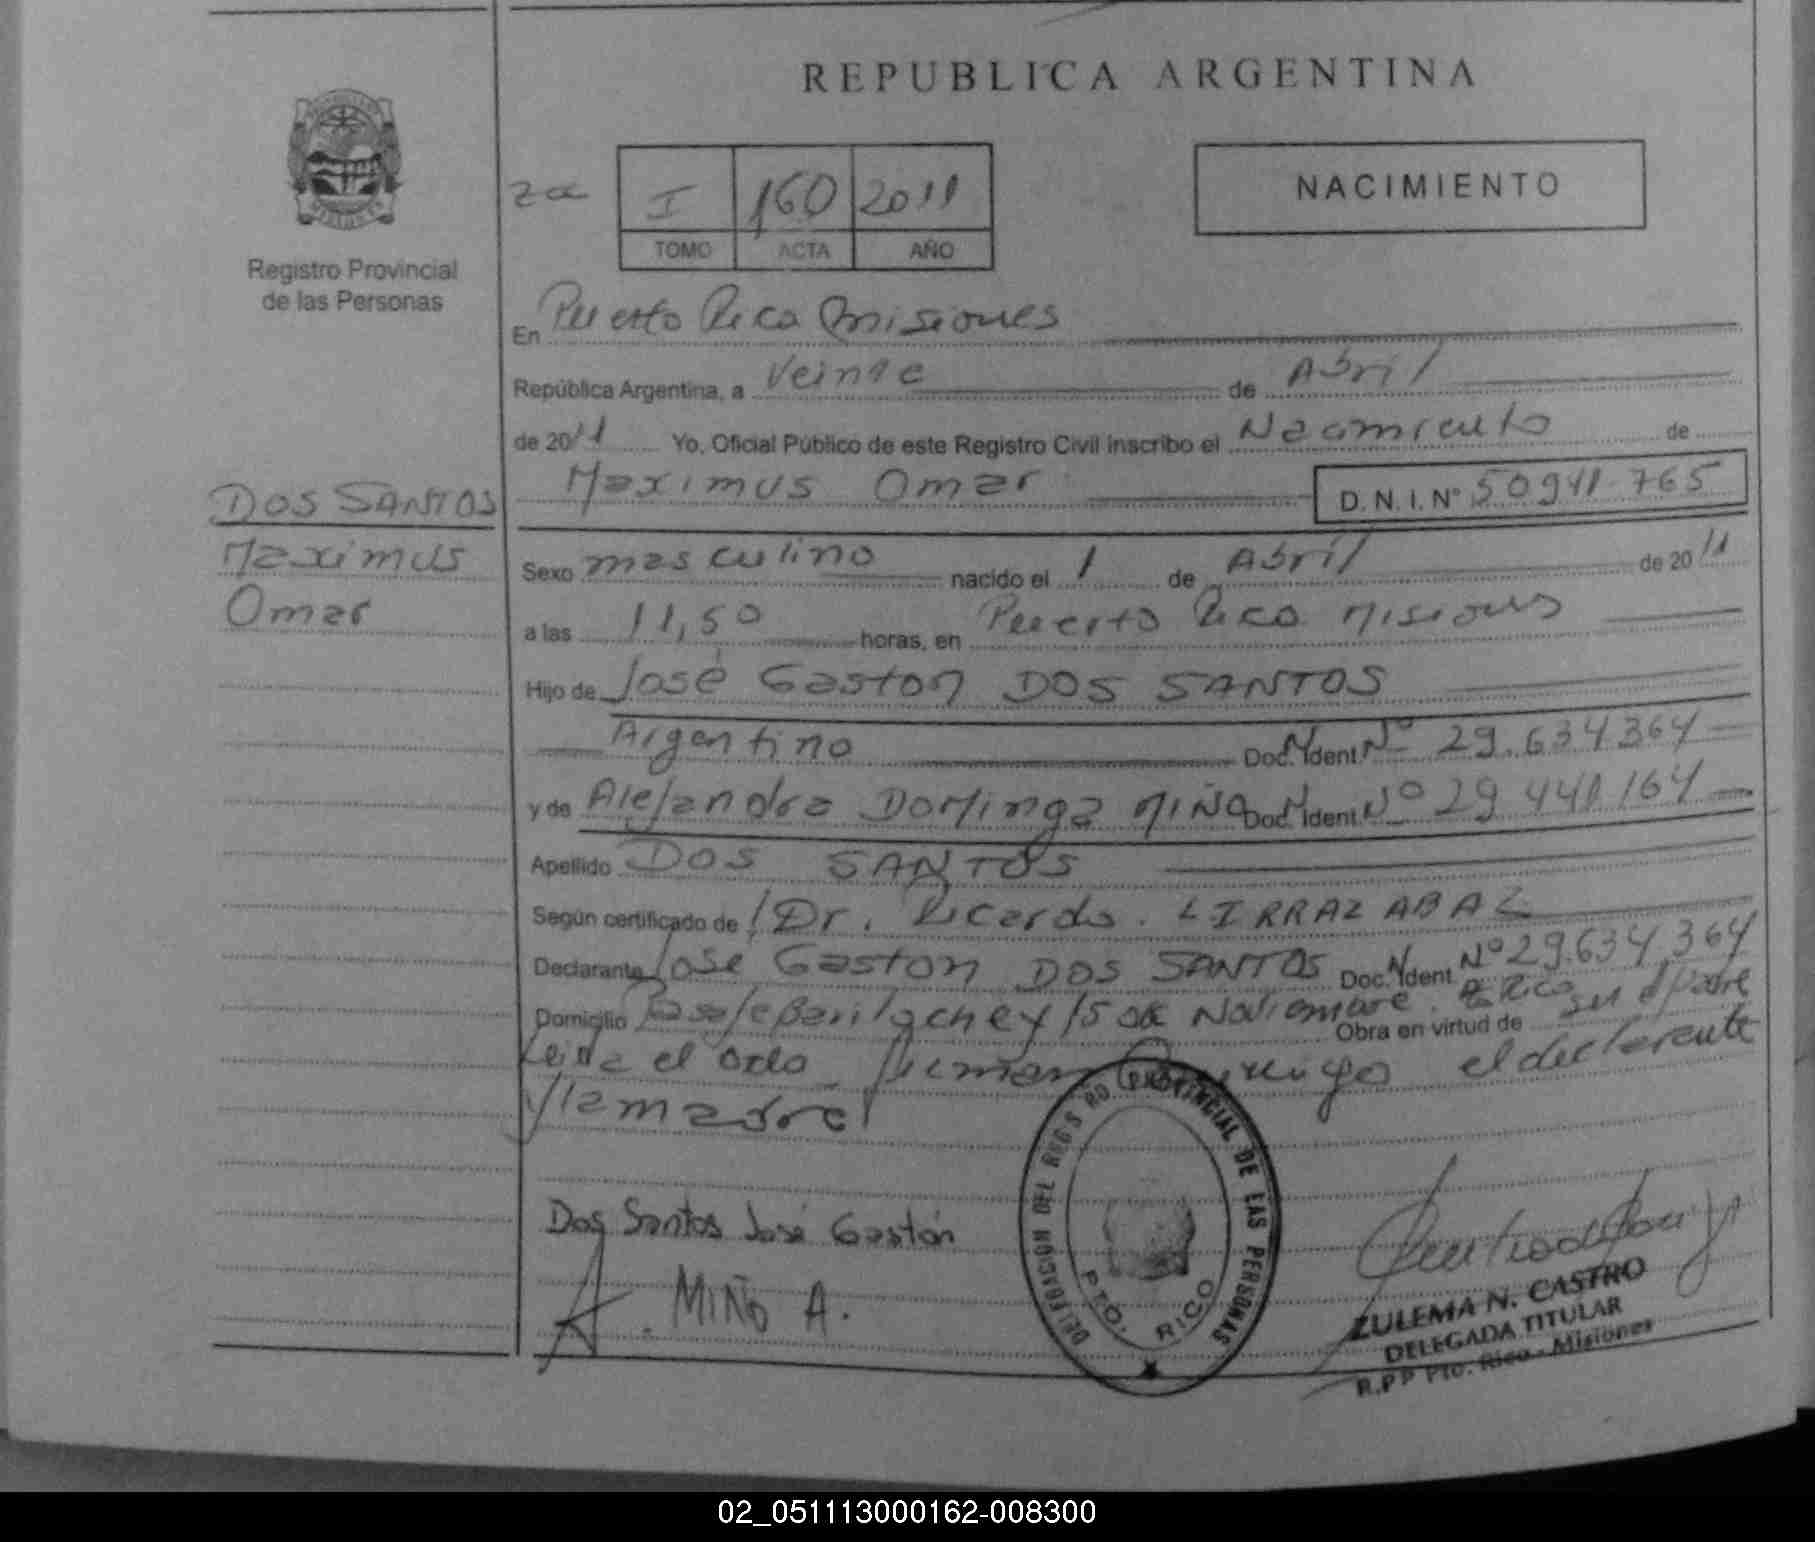 REPUBLICA ARGENTINA
Registro Provincial
de las Personas
I 160 2011
TOMO ACTA AÑO
NACIMIENTO
En Puerto Rico Misiones
República Argentina, a Veinte de Abril
de 2011 Yo, Oficial Público de este Registro Civil inscribo el Nacimiento de
Maximus Omar D.N.I.Nº 50941765
DOS SANTOS
Maximus
Omar
Sexo masculino nacido el 1 de Abril de 2011
a las 11,50 horas, en Puerto Rico Misiones
Hijo de José Gaston DOS SANTOS
Argentino Doc. Ident. Nº 29.634364
y de Alejandra Dominga MIÑO Doc. Ident. Nº 29441164
Apellido DOS SANTOS
Según certificado de Dr. Ricardo LIRRAZABAL
Declarante José Gaston DOS SANTOS Doc. Ident. Nº 29.634.364
Domicilio Pasaje Bariloche y 15 de Noviembre. Pto Rico Obra en virtud de ser el padre
Leída el acta firman conmigo el declarante
y la madre
Dos Santos José Gastón
A. MIÑO A.
DELEGACION DEL REGISTRO PROVINCIAL DE LAS PERSONAS
PTO. RICO
ZULEMA N. CASTRO
DELEGADA TITULAR
R.P.P Pto. Rico - Misiones
02_051113000162-008300